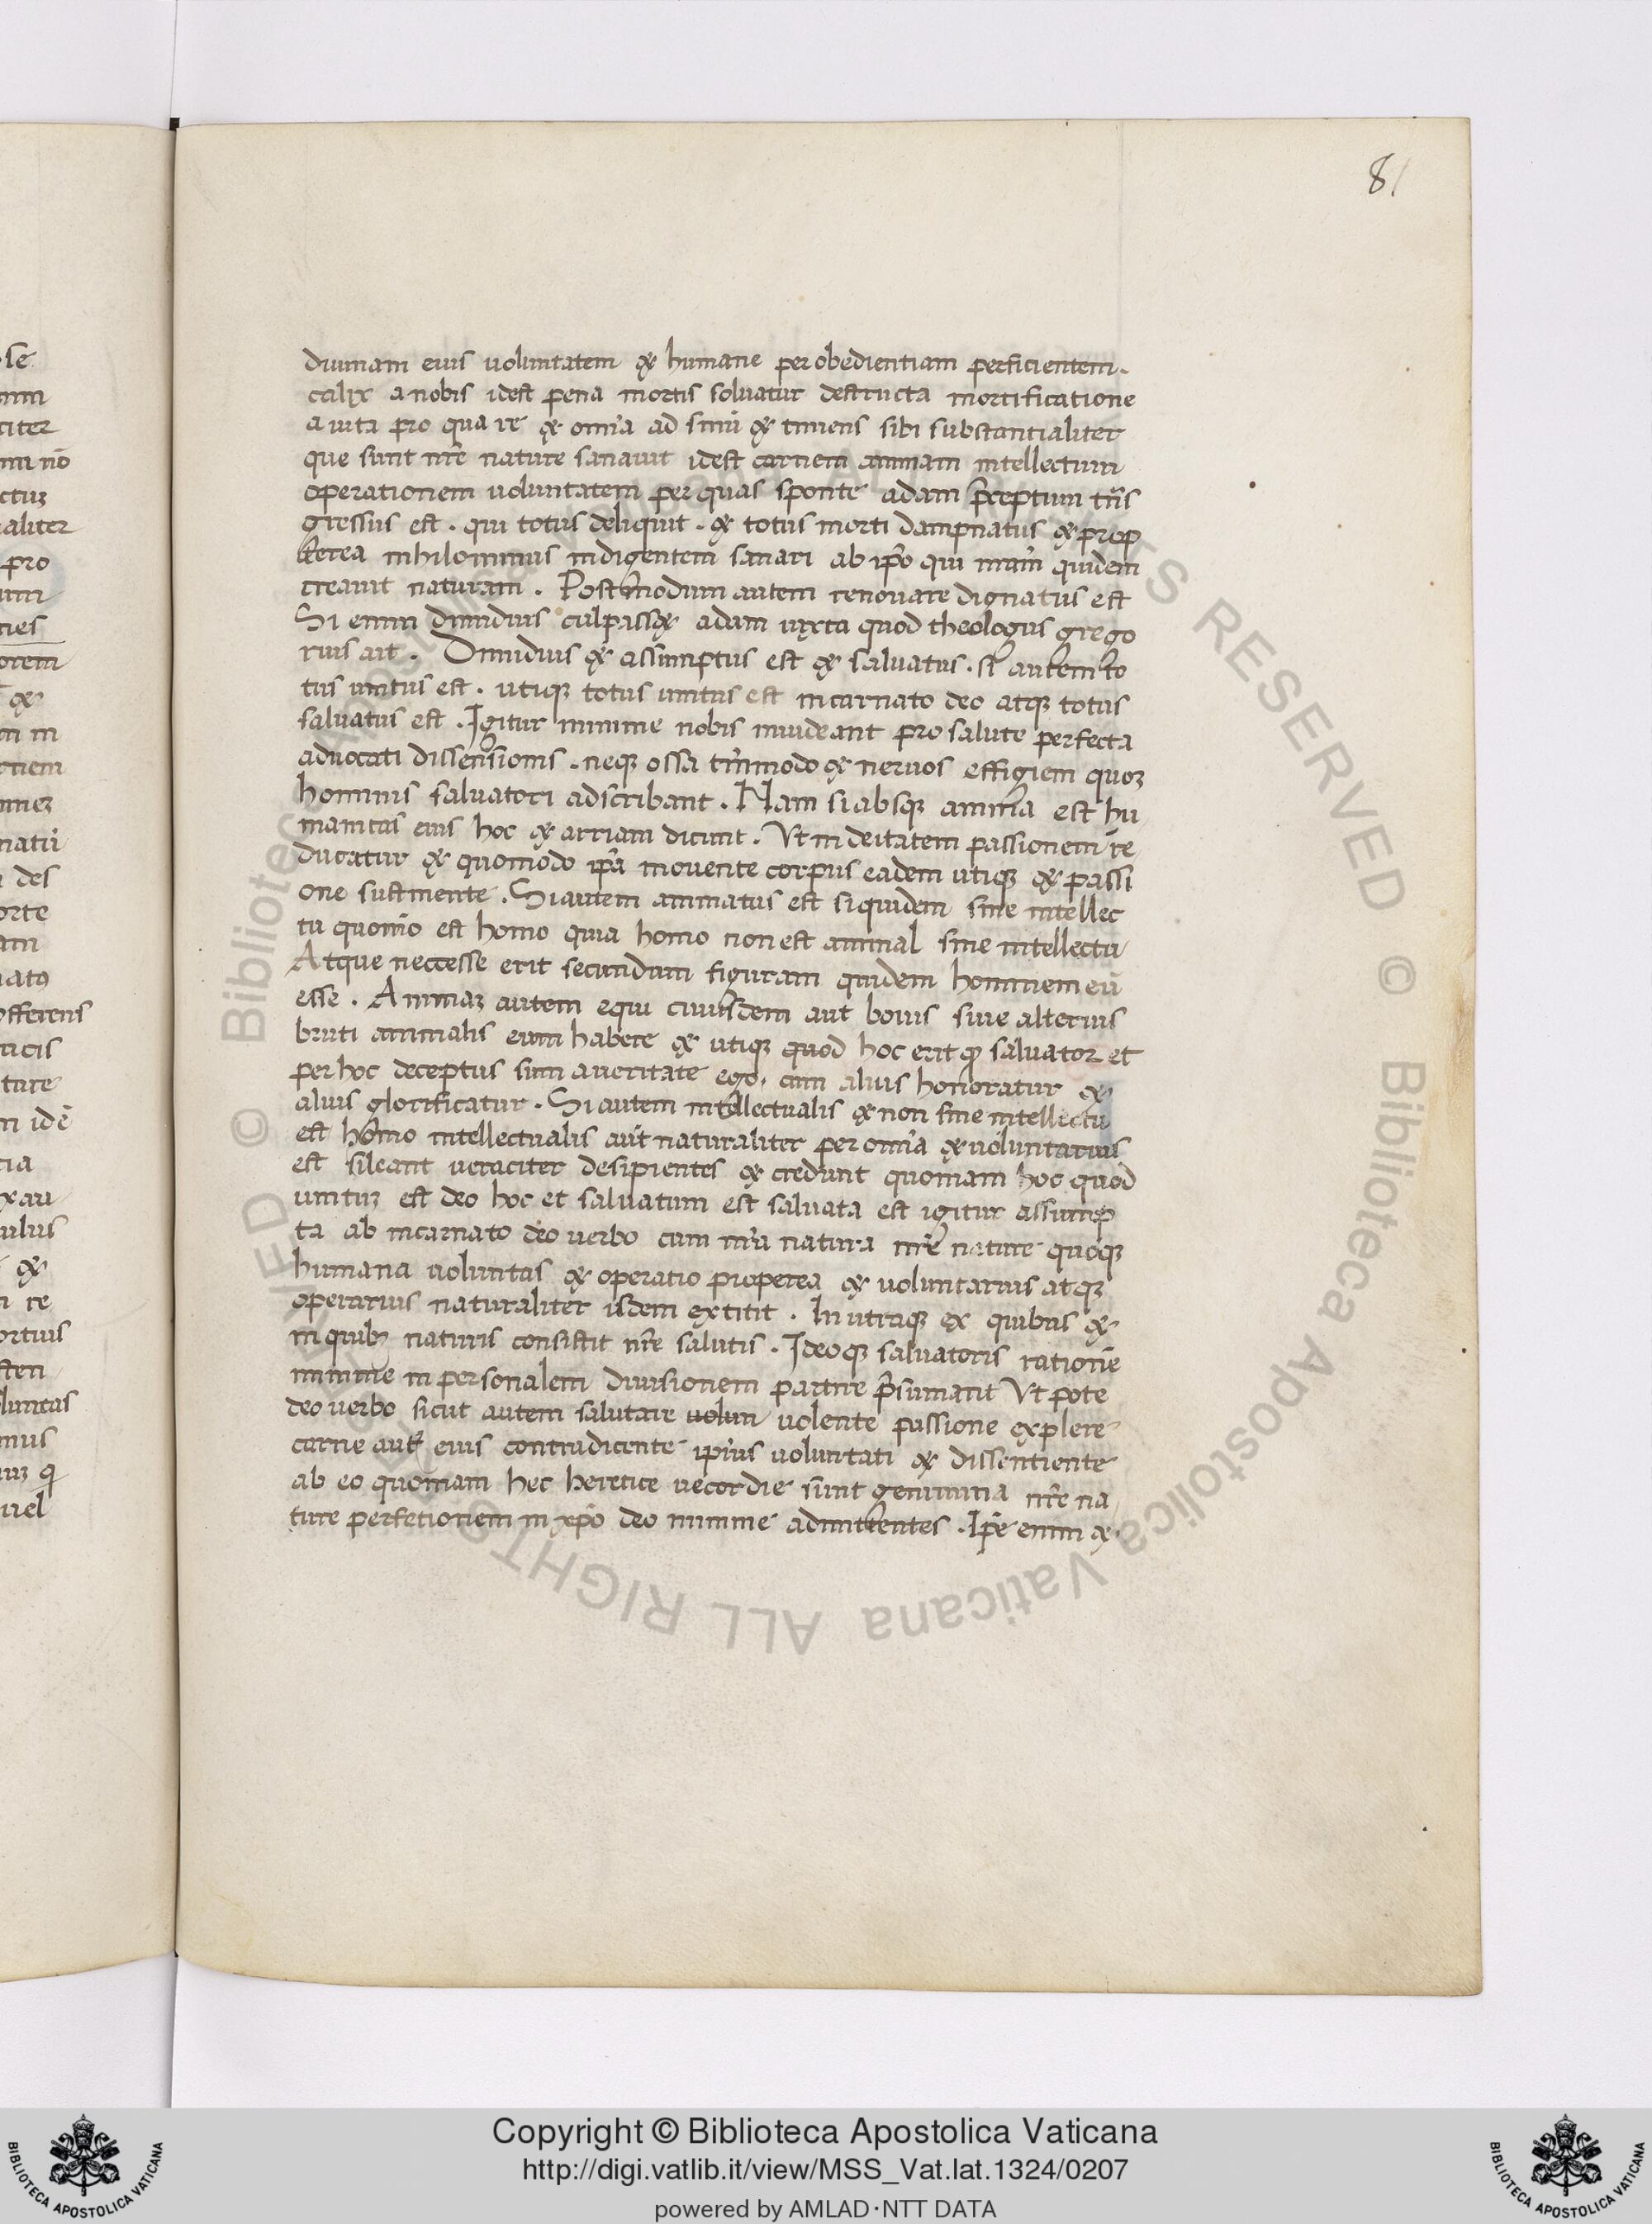 81
diuinam eius uoluntatem & humane per obedientiam perficientem.
calix a nobis idest pena mortis soluatur destructa mortificatione
a uita pro qua re & om̃ia ad simũ & timens sibi substantialiter
que sunt nr̃e nature sanauit idest carnem animam intellectum
operationem uoluntatem per quas sponte adam p̃ceptum tñs
gressus est . qui totus deliquit . & totus morti dampnatus & prop
terea nihilominus indigentem sanari ab ip̃o qui nr̃am quidem
creauit naturam . Postmodum autem renouare dignatus est
Si enim dimidius culpasset adam iuxta quod theologus grego
rius ait . Dimidius & assumptus est & saluatus . si autem to
tus unitus est . utiqꝫ totus unitus est incarnato deo atqꝫ totus
saluatus est . Igitur minime nobis inuideant pro salute perfecta
aduocati dissensionis . neqꝫ ossa tm̃modo & neruos effigiem quoꝫ
hominis saluatori adscribant . Nam si absqꝫ anima est hu
manitas eius hoc & arriani dicunt . Vt in deitatem passionem re
ducatur & quomodo ip̃a mouente corpus eadem utiqꝫ & passi
one sustinente . Si autem animatus est siquidem sine intellec
tu quomõ est homo quia homo non est animal sine intellectu
Atque neccesse erit secundum figuram quidem hominem eũ
esse . Animaꝫ autem equi cuiusdem aut bouis siue alterius
bruti animalis eum habere & utiqꝫ quod hoc erit ꝙ saluator et
per hoc deceptus sum a ueritate ego . cum alius honoratur &
alius glorificatur . Si autem intellectualis & non sine intellectu
est homo intellectualis aut naturaliter per om̃ia & uoluntarius
est sileant ueraciter desipientes & credunt quoniam hoc quod
unituꝫ est deo hoc et saluatum est saluata est igitur assump
ta ab incarnato deo uerbo cum nr̃a natura nr̃e nature quoqꝫ
humana uoluntas & operatio properea & uoluntarius atqꝫ
operarius naturaliter isdem extitit . In utraqꝫ ex quibus &
in quibꝫ naturis consistit nr̃e salutis . Ideoqꝫ saluatoris rationẽ
minime in personalem diuisionem partire p̃sumant Vt pote
deo uerbo sicut autem salutare uolun uolente passione explere
carne aut eius contradicente ip̃ius uoluntati & dissentiente
ab eo quoniam hec heretice uecordie sunt genimina nr̃e na
ture perfetionem in xp̃o deo minime admittentes . Ip̃e enim &
Copyright © Biblioteca Apostolica Vaticana
http://digi.vatlib.it/view/MSS_Vat.lat.1324/0207
powered by AMLAD·NTT DATA
BIBLIOTECA APOSTOLICA VATICANA
BIBLIOTECA APOSTOLICA VATICANA
© Biblioteca Apostolica Vaticana ALL RIGHTS RESERVED